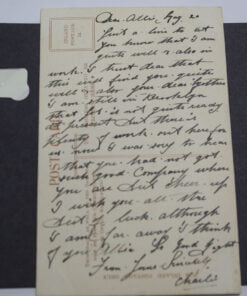 INLAND
POSTAGE
½
Dear Allie, Aug 20
Just a line to let
you know that I am
quite well & also in
work. I trust dear that
this will find you quite
well & also your dear
I am still in Brooklyn
that is not quite ready
at present but there is
plenty of work out here for
us. now I was sorry to hear
that you had not got
such Good Company where
you are but cheer up
I wish you all the
best of luck although
I am far away I think
of you Allie So Good Night
From Yours Sincerely
Charlie
POST